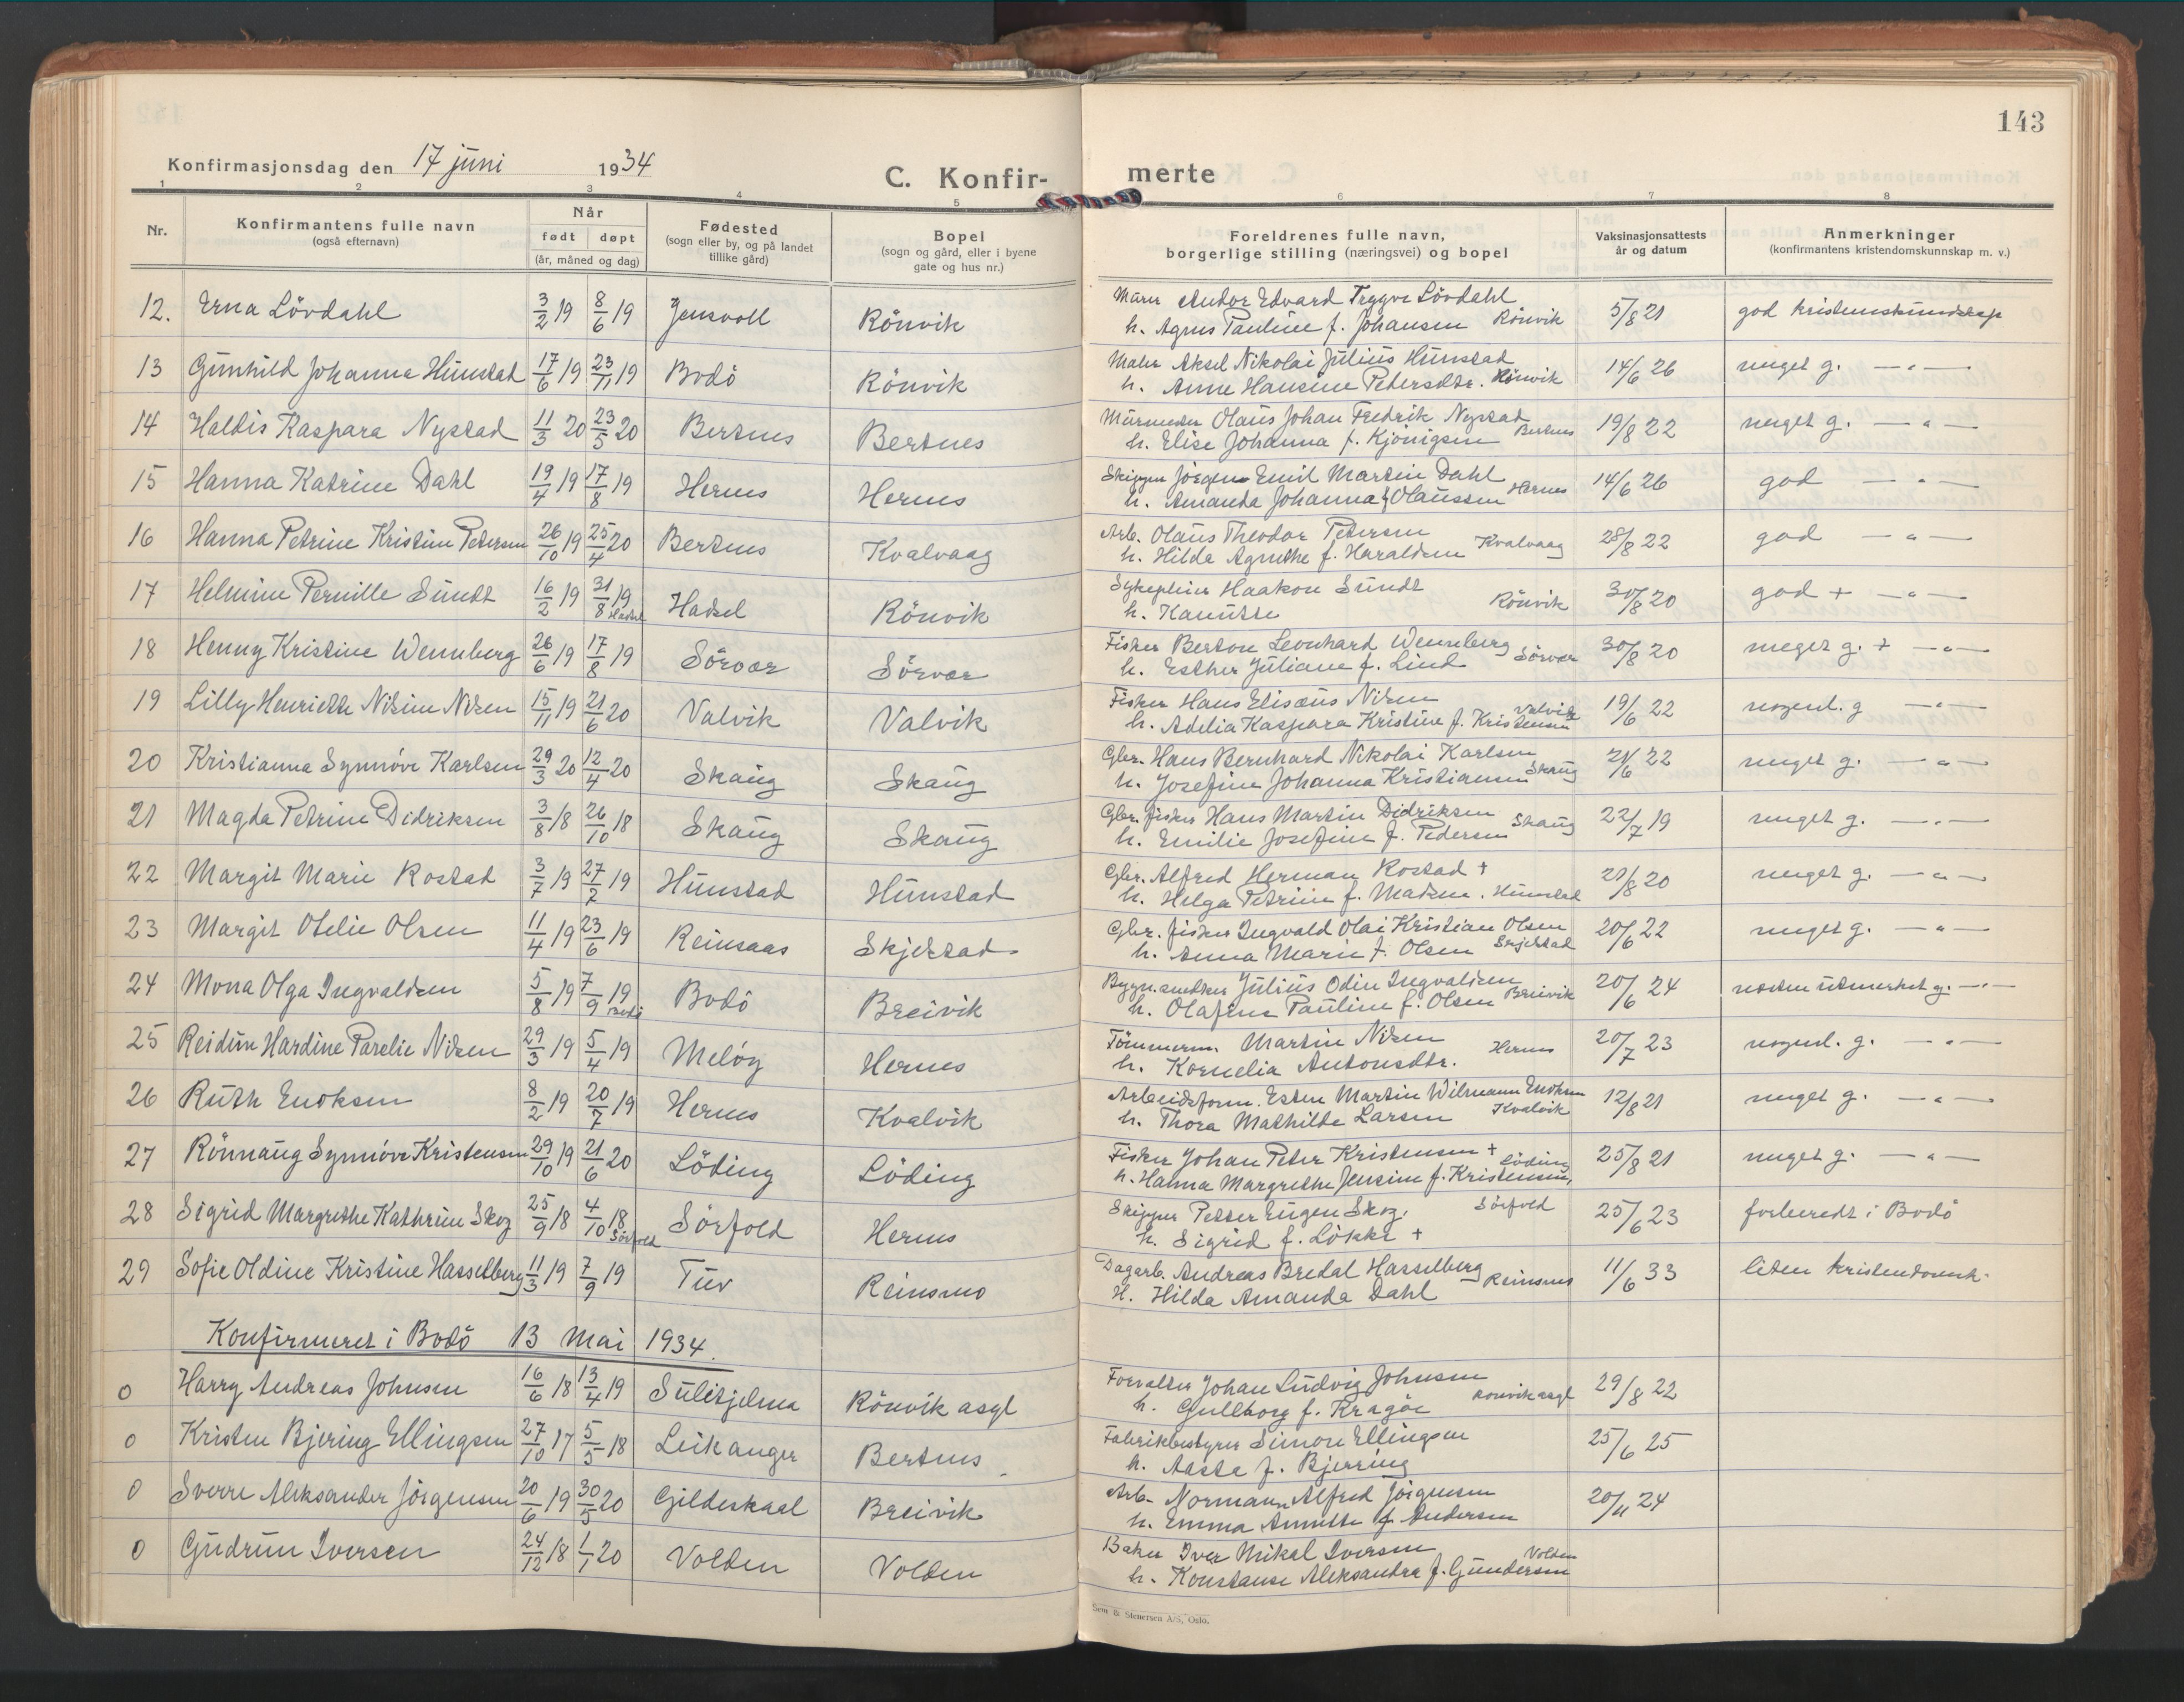 143
Konfirmasjonsdag den 17 juni 1934
C. Konfir-
merte
1 2 3 4 5 6 7 8
Nr.
Konfirmantens fulle navn
(også efternavn)
Når
født døpt
(år, måned og dag)
Fødested
(sogn eller by, og på landet
tillike gård)
Bopel
(sogn og gård, eller i byene
gate og hus nr.)
Foreldrenes fulle navn,
borgerlige stilling (næringsvei) og bopel
Vaksinasjonsattests
år og datum
Anmerkninger
(konfirmantens kristendomskunnskap m. v.)
12. Erna Lövdahl 3/2 19 8/6 19 Jensvoll Rönvik Murer Andor Edvard Trygve Lövdahl 5/8 21 god kristenskundskap
h. Agnes Pauline f. Johansen Rönvik
13 Gunhild Johanna Hunstad 17/6 19 23/11 19 Bodö Rönvik Maler Aksel Nikolai Julius Hunstad 14/6 26 meget g. — " —
h. Anne Hansine Petersdtr. Rönvik
14 Haldis Kaspara Nystad 11/3 20 23/5 20 Bertnes Bertnes Murmester Olaus Johan Fredrik Nystad 19/8 22 meget g. — " —
h. Elise Johanna f. Kjönigsen Bertnes
15 Hanna Katrine Dahl 19/4 19 17/8 19 Hernes Hernes Skipper Jörgen Emil Martin Dahl 14/6 26 god — " —
h. Amanda Johanna f. Olaussen Hernes
16 Hanna Petrine Kristine Petersen 26/10 19 25/4 20 Bertnes Kvalvaag Arb. Olaus Theodor Petersen 28/8 22 god — " —
h. Hilda Agnethe f. Haraldsen Kvalvaag
17 Helmine Pernille Sundt 16/2 19 31/8 19 Hadsel Hadsel Rönvik Sykepleier Haakon Sundt 30/8 20 god + — " —
h. Hanutte Rönvik
18 Henny Kristine Wennberg 26/6 19 17/8 19 Sörvær Sörvær Fisker Berton Leonhard Wennberg 30/8 20 meget g. + — " —
h. Esther Juliane f. Lind Sörvær
19 Lilly Henriette Nisine Nilsen 15/11 19 21/6 20 Valvik Valvik Fisker Hans Elisæus Nilsen 19/6 22 nogenl. g — " —
h. Adelia Kaspara Kristine f. Kristensen Valvik
20 Kristianna Synnöve Karlsen 29/3 20 12/4 20 Skaug Skaug Gbr. Hans Bernhard Nikolai Karlsen 21/6 22 meget g. — " —
h. Josefine Johanna Kristiansen Skaug
21 Magda Petrine Didriksen 3/8 18 26/10 18 Skaug Skaug Gbr. fisker Hans Martin Didriksen 22/7 19 meget g. — " —
h. Emilie Josefine f. Pedersen Skaug
22 Margit Marie Rostad 3/7 19 27/7 19 Hunstad Hunstad Gbr. Alfred Herman Rostad + 21/8 20 meget g. — " —
h. Helga Petrine f. Madsen. Hunstad
23 Margit Otelie Olsen 11/4 19 23/6 19 Reinsaas Skjelstad Gbr. fisker Ingvald Olai Kristian Olsen 20/6 22 meget g. — " —
h. Anna Marie f. Olsen Skjelstad
24 Mona Olga Ingvaldsen 5/8 19 7/9 19 Bodö Bodö Breivik Bygn.snedker Julius Odin Ingvaldsen 20/6 24 nesten utmerket g. — " —
h. Olafine Pauline f. Olsen Breivik
25 Reidun Hardine Parelie Nilsen 29/3 19 5/4 19 Melöy Hernes Tömmerm. Martin Nilsen 20/7 23 nogenl. g. — " —
h. Kornelia Antonsdtr. Hernes
26 Ruth Enoksen 8/2 19 20/7 19 Hernes Kvalvik Arbeidsform. Esten Martin Wilmann Enoksen 12/8 21 meget g. — " —
h. Thora Mathilde Larsen Kvalvik
27 Rönnaug Synnöve Kristensen 29/10 19 21/6 20 Löding Löding Fisker Johan Peter Kristensen + 25/8 21 meget g. — " —
h. Hanna Margrethe Jensine f. Kristensen, Löding
28 Sigrid Margrethe Kathrine Skog 25/9 18 4/10 18 Sörfold Sörfold Hernes Skipper Petter Eugen Skog. Sörfold 25/6 23 forberedt i Bodö
h. Sigrid f. Lökke +
29 Sofie Oldine Kristine Hasselberg 11/3 19 7/9 19 Tuv Reinsmo Dagarb. Andreas Bredal Hasselberg 11/6 33 liten kristendomsk.
H. Hilda Amanda Dahl Reinsnes
Konfirmeret i Bodö 13 mai 1934.
0 Harry Andreas Johnsen 16/6 18 13/4 19 Sulitjelma Rönvik asyl Forvalter Johan Ludvig Johnsen 29/8 22
h. Gullborg f. Kragöe Rönvik asyl
0 Kristen Bjering Ellingsen 27/10 17 5/5 18 Leikanger Bertnes Fabrikbestyrer Simon Ellingsen 25/6 25
h. Aasta f. Bjerring
0 Sverre Aleksander Jörgensen 20/6 19 30/5 20 Gildeskaal Breivik Arb. Normann Alfred Jörgensen 20/11 24
h. Emma Annette f. Andersen
0 Gudrun Iversen 24/12 18 1/1 20 Volden Volden Baker Iver Mikal Iversen
h. Konstanse Aleksandra f. Gundersen Volden
Sem & Stenersen A/S, Oslo.